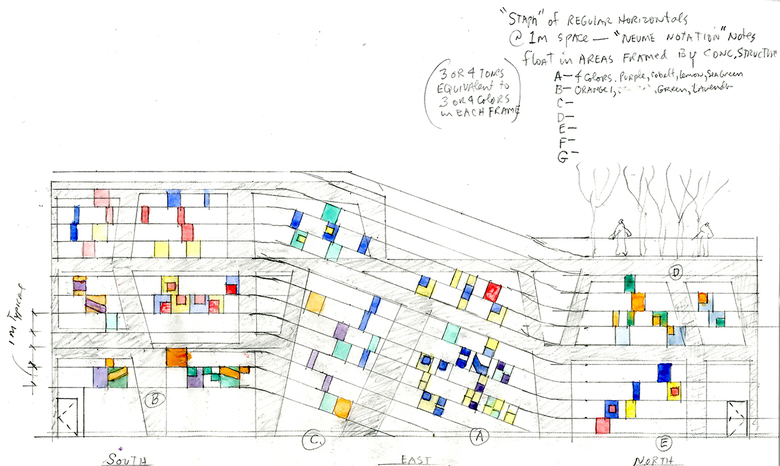 "STAPH" of REGULAR HORIZONTALS
@ 1m SPACE — "NEUME NOTATION" Notes
float in AREAS FRAMED BY CONC. STRUCTURE
A — 4 COLORS. Purple, Cobalt, Lemon, Sea Green
B — ORANGE, Green, Lavender
C —
D —
E —
F —
G —
3 OR 4 TONES
EQUIVALENT to
3 OR 4 COLORS
in EACH FRAME
D
1m Typical
B
C
A
E
SOUTH
EAST
NORTH